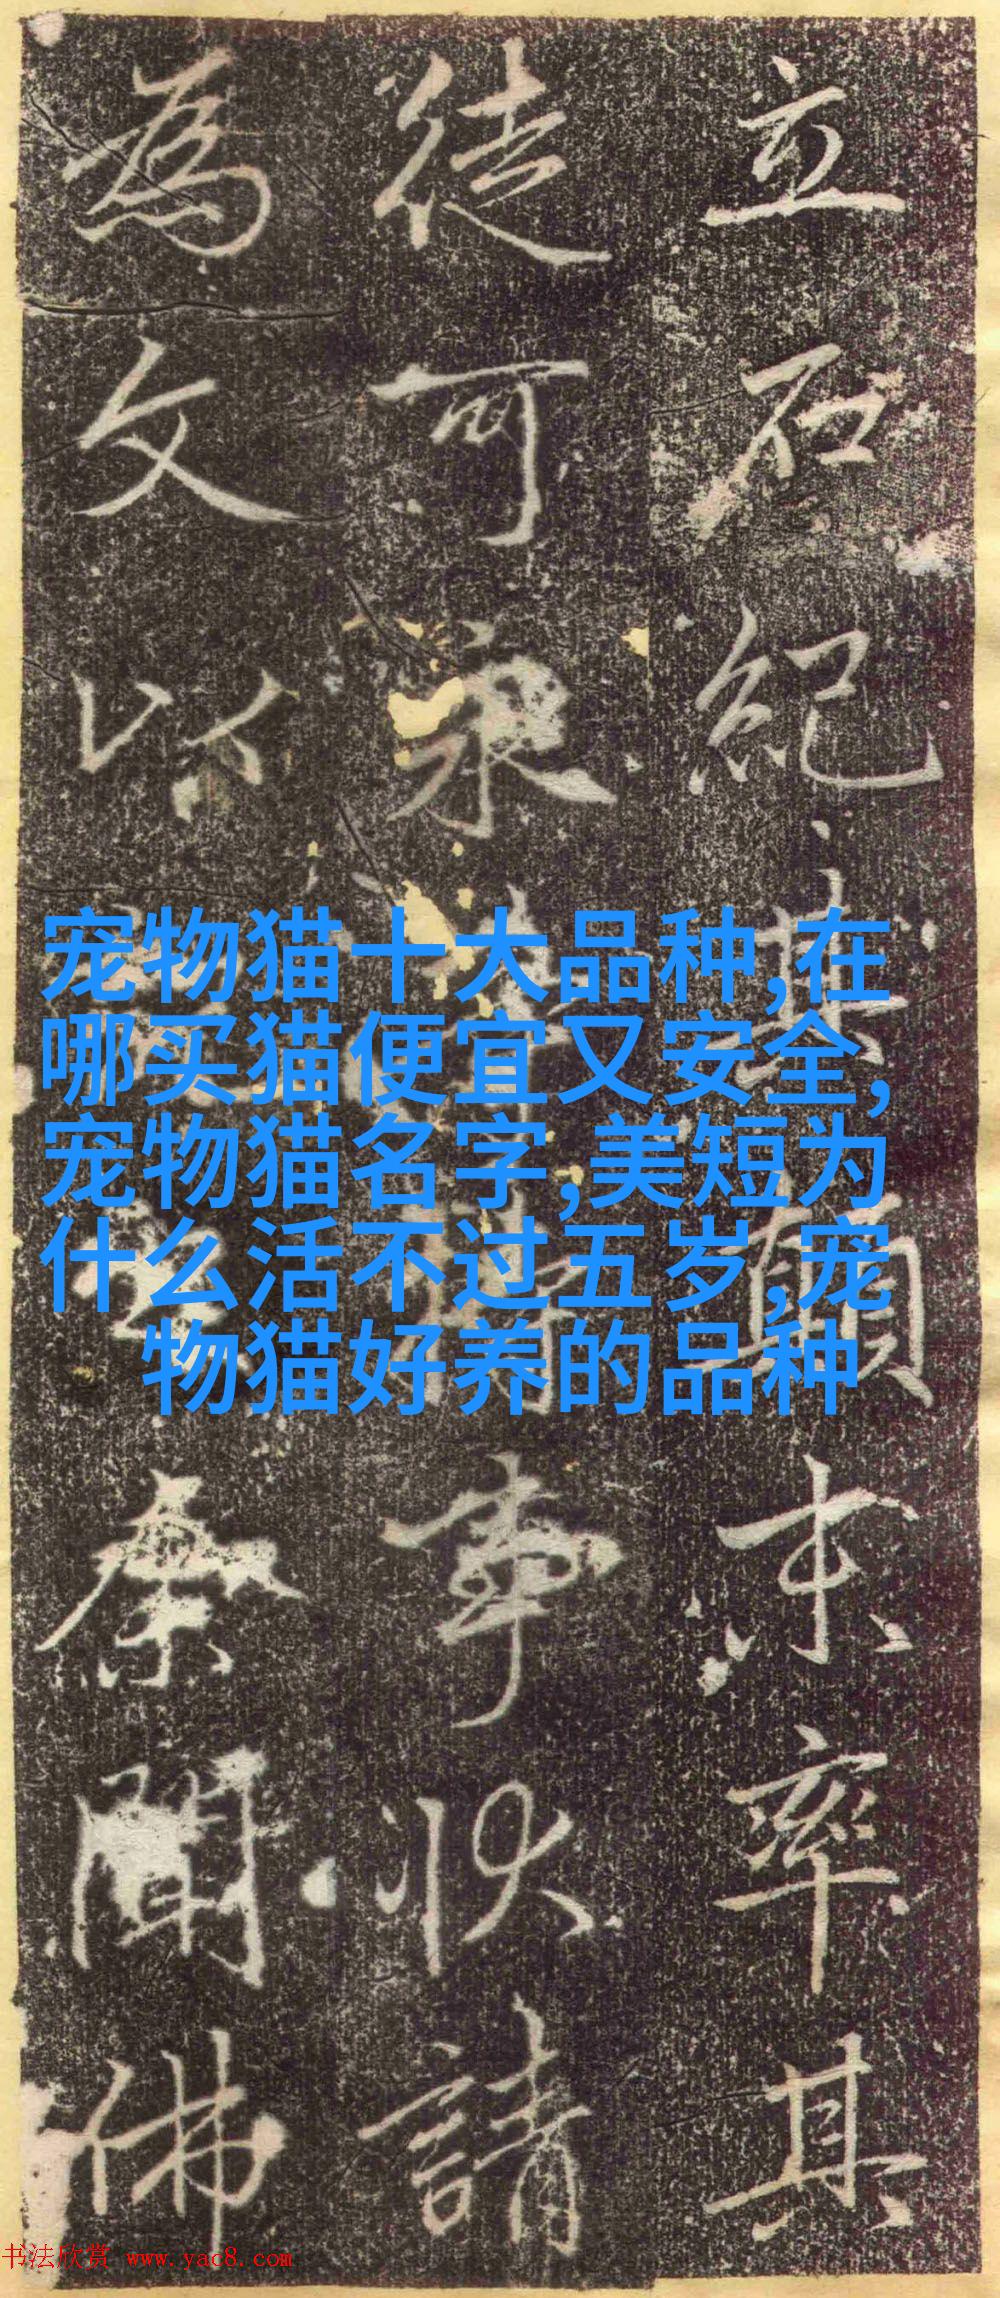 立石紀其顛末率其
徒可事狀請
為文以聞佛
宠物猫十大品种,在
哪买猫便宜又安全,
宠物猫名字,美短为
什么活不过五岁,宠
物猫好养的品种
书法欣赏 www.yac8.com